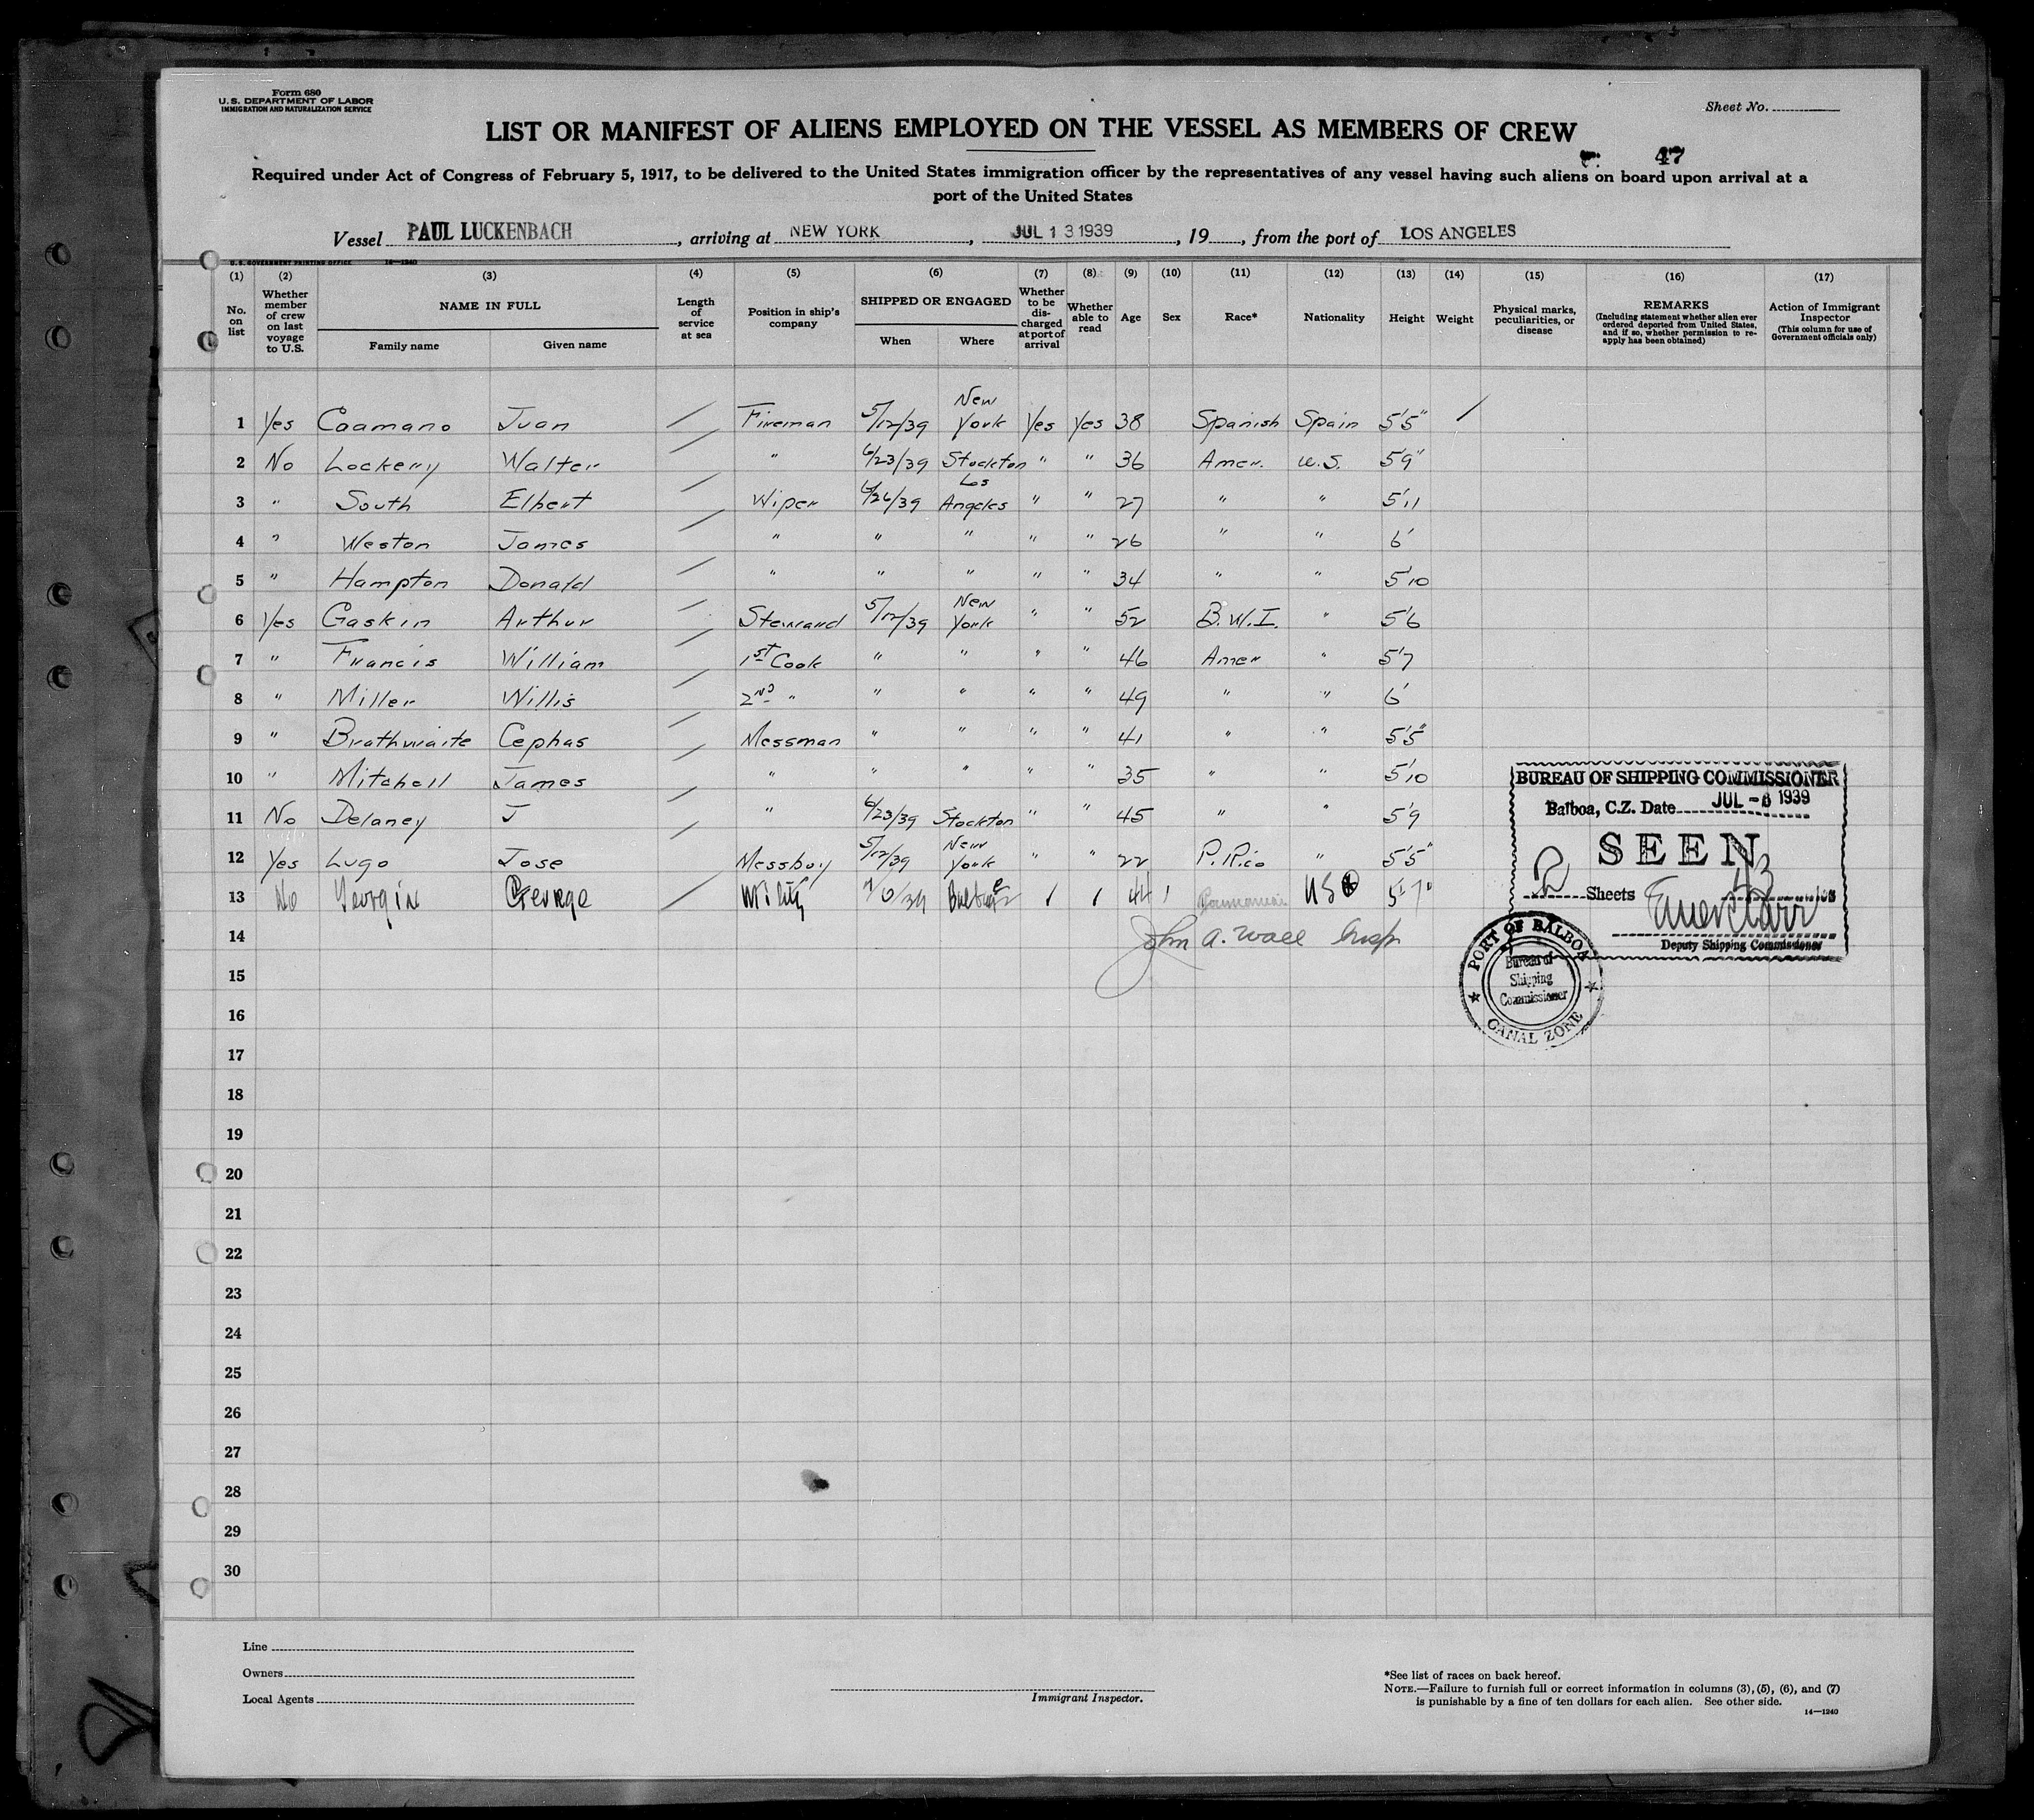 Form 680
U.S. DEPARTMENT OF LABOR
IMMIGRATION AND NATURALIZATION SERVICE
Sheet No.
LIST OR MANIFEST OF ALIENS EMPLOYED ON THE VESSEL AS MEMBERS OF CREW
47
Required under Act of Congress of February 5, 1917, to be delivered to the United States immigration officer by the representatives of any vessel having such aliens on board upon arrival at a
port of the United States
Vessel PAUL LUCKENBACH, arriving at NEW YORK, JUL 13 1939, 19, from the port of LOS ANGELES
U.S. GOVERNMENT PRINTING OFFICE 14—1240
(1) (2) (3) (4) (5) (6) (7) (8) (9) (10) (11) (12) (13) (14) (15) (16) (17)
No. on list
Whether member of crew on last voyage to U.S.
NAME IN FULL
Family name Given name
Length of service at sea
Position in ship's company
SHIPPED OR ENGAGED
When Where
Whether to be discharged at port of arrival
Whether able to read
Age
Sex
Race*
Nationality
Height
Weight
Physical marks, peculiarities, or disease
REMARKS
(Including statement whether alien ever ordered deported from United States, and if so, whether permission to reapply has been obtained)
Action of Immigrant Inspector
(This column for use of Government officials only)
1 Yes Caamano Juan Fireman 5/12/39 New York Yes Yes 38 Spanish Spain 5'5"
2 No Lockery Walter " 6/23/39 Stockton " " 36 Amer. U.S. 5'9"
3 " South Elbert Wiper 6/26/39 Los Angeles " " 27 " " 5'11
4 " Weston James " " " " " 26 " " 6'
5 " Hampton Donald " " " " " 34 " " 5'10
6 Yes Gaskin Arthur Steward 5/12/39 New York " " 52 B.W.I. " 5'6
7 " Francis William 1st Cook " " " " 46 Amer " 5'7
8 " Miller Willis 2nd " " " " " 49 " " 6'
9 " Brathwaite Cephas Messman " " " " 41 " " 5'5"
10 " Mitchell James " " " " " 35 " " 5'10
11 No Delaney J " 6/23/39 Stockton " " 45 " " 5'9
12 Yes Lugo Jose Messboy 5/12/39 New York " " 22 P. Rico " 5'5"
13 No Georgin George 44 US 5'7"
14 John A. Wall Insp
15
16
17
18
19
20
21
22
23
24
25
26
27
28
29
30
BUREAU OF SHIPPING COMMISSIONER
Balboa, C.Z. Date JUL -6 1939
SEEN
2 Sheets 43
Deputy Shipping Commissioner
PORT OF BALBOA
Bureau of
Shipping
Commissioner
CANAL ZONE
Line
Owners
Local Agents
Immigrant Inspector.
*See list of races on back hereof.
NOTE.—Failure to furnish full or correct information in columns (3), (5), (6), and (7)
is punishable by a fine of ten dollars for each alien. See other side.
14—1240